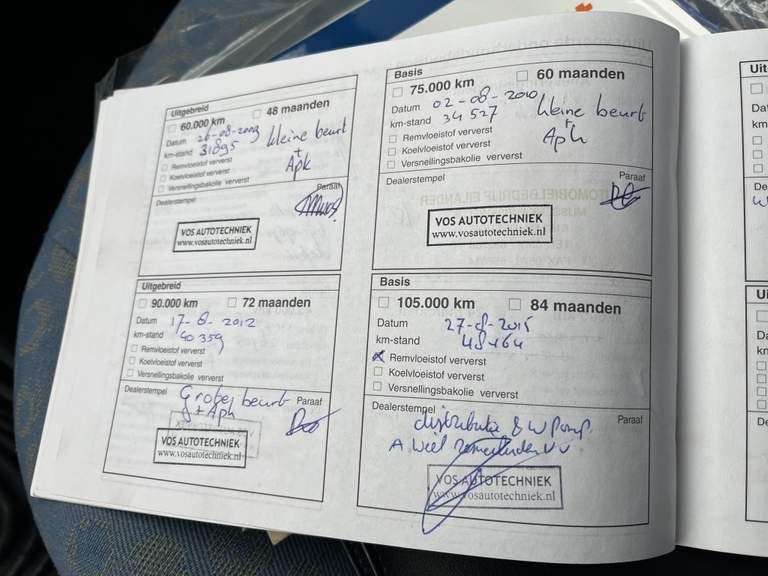 Uitgebreid
60.000 km 48 maanden
Datum 26-08-2009 kleine beurt
km-stand 31895 +
Remvloeistof ververst Apk
Koelvloeistof ververst
Versnellingsbakolie ververst
Dealerstempel Paraaf
VOS AUTOTECHNIEK
www.vosautotechniek.nl
Basis
75.000 km 60 maanden
Datum 02-08-2010 kleine beurt
km-stand 34527 +
Remvloeistof ververst Apk
Koelvloeistof ververst
Versnellingsbakolie ververst
Dealerstempel Paraaf
VOS AUTOTECHNIEK
www.vosautotechniek.nl
Uitgebreid
90.000 km 72 maanden
Datum 17-8-2012
km-stand 40359
Remvloeistof ververst
Koelvloeistof ververst
Versnellingsbakolie ververst
Dealerstempel Grote beurt Paraaf
+ Apk
VOS AUTOTECHNIEK
www.vosautotechniek.nl
Basis
105.000 km 84 maanden
Datum 27-8-2015
km-stand 48464
Remvloeistof ververst
Koelvloeistof ververst
Versnellingsbakolie ververst
Dealerstempel Paraaf
distributie & W pomp.
A. Wiel
VOS AUTOTECHNIEK
www.vosautotechniek.nl